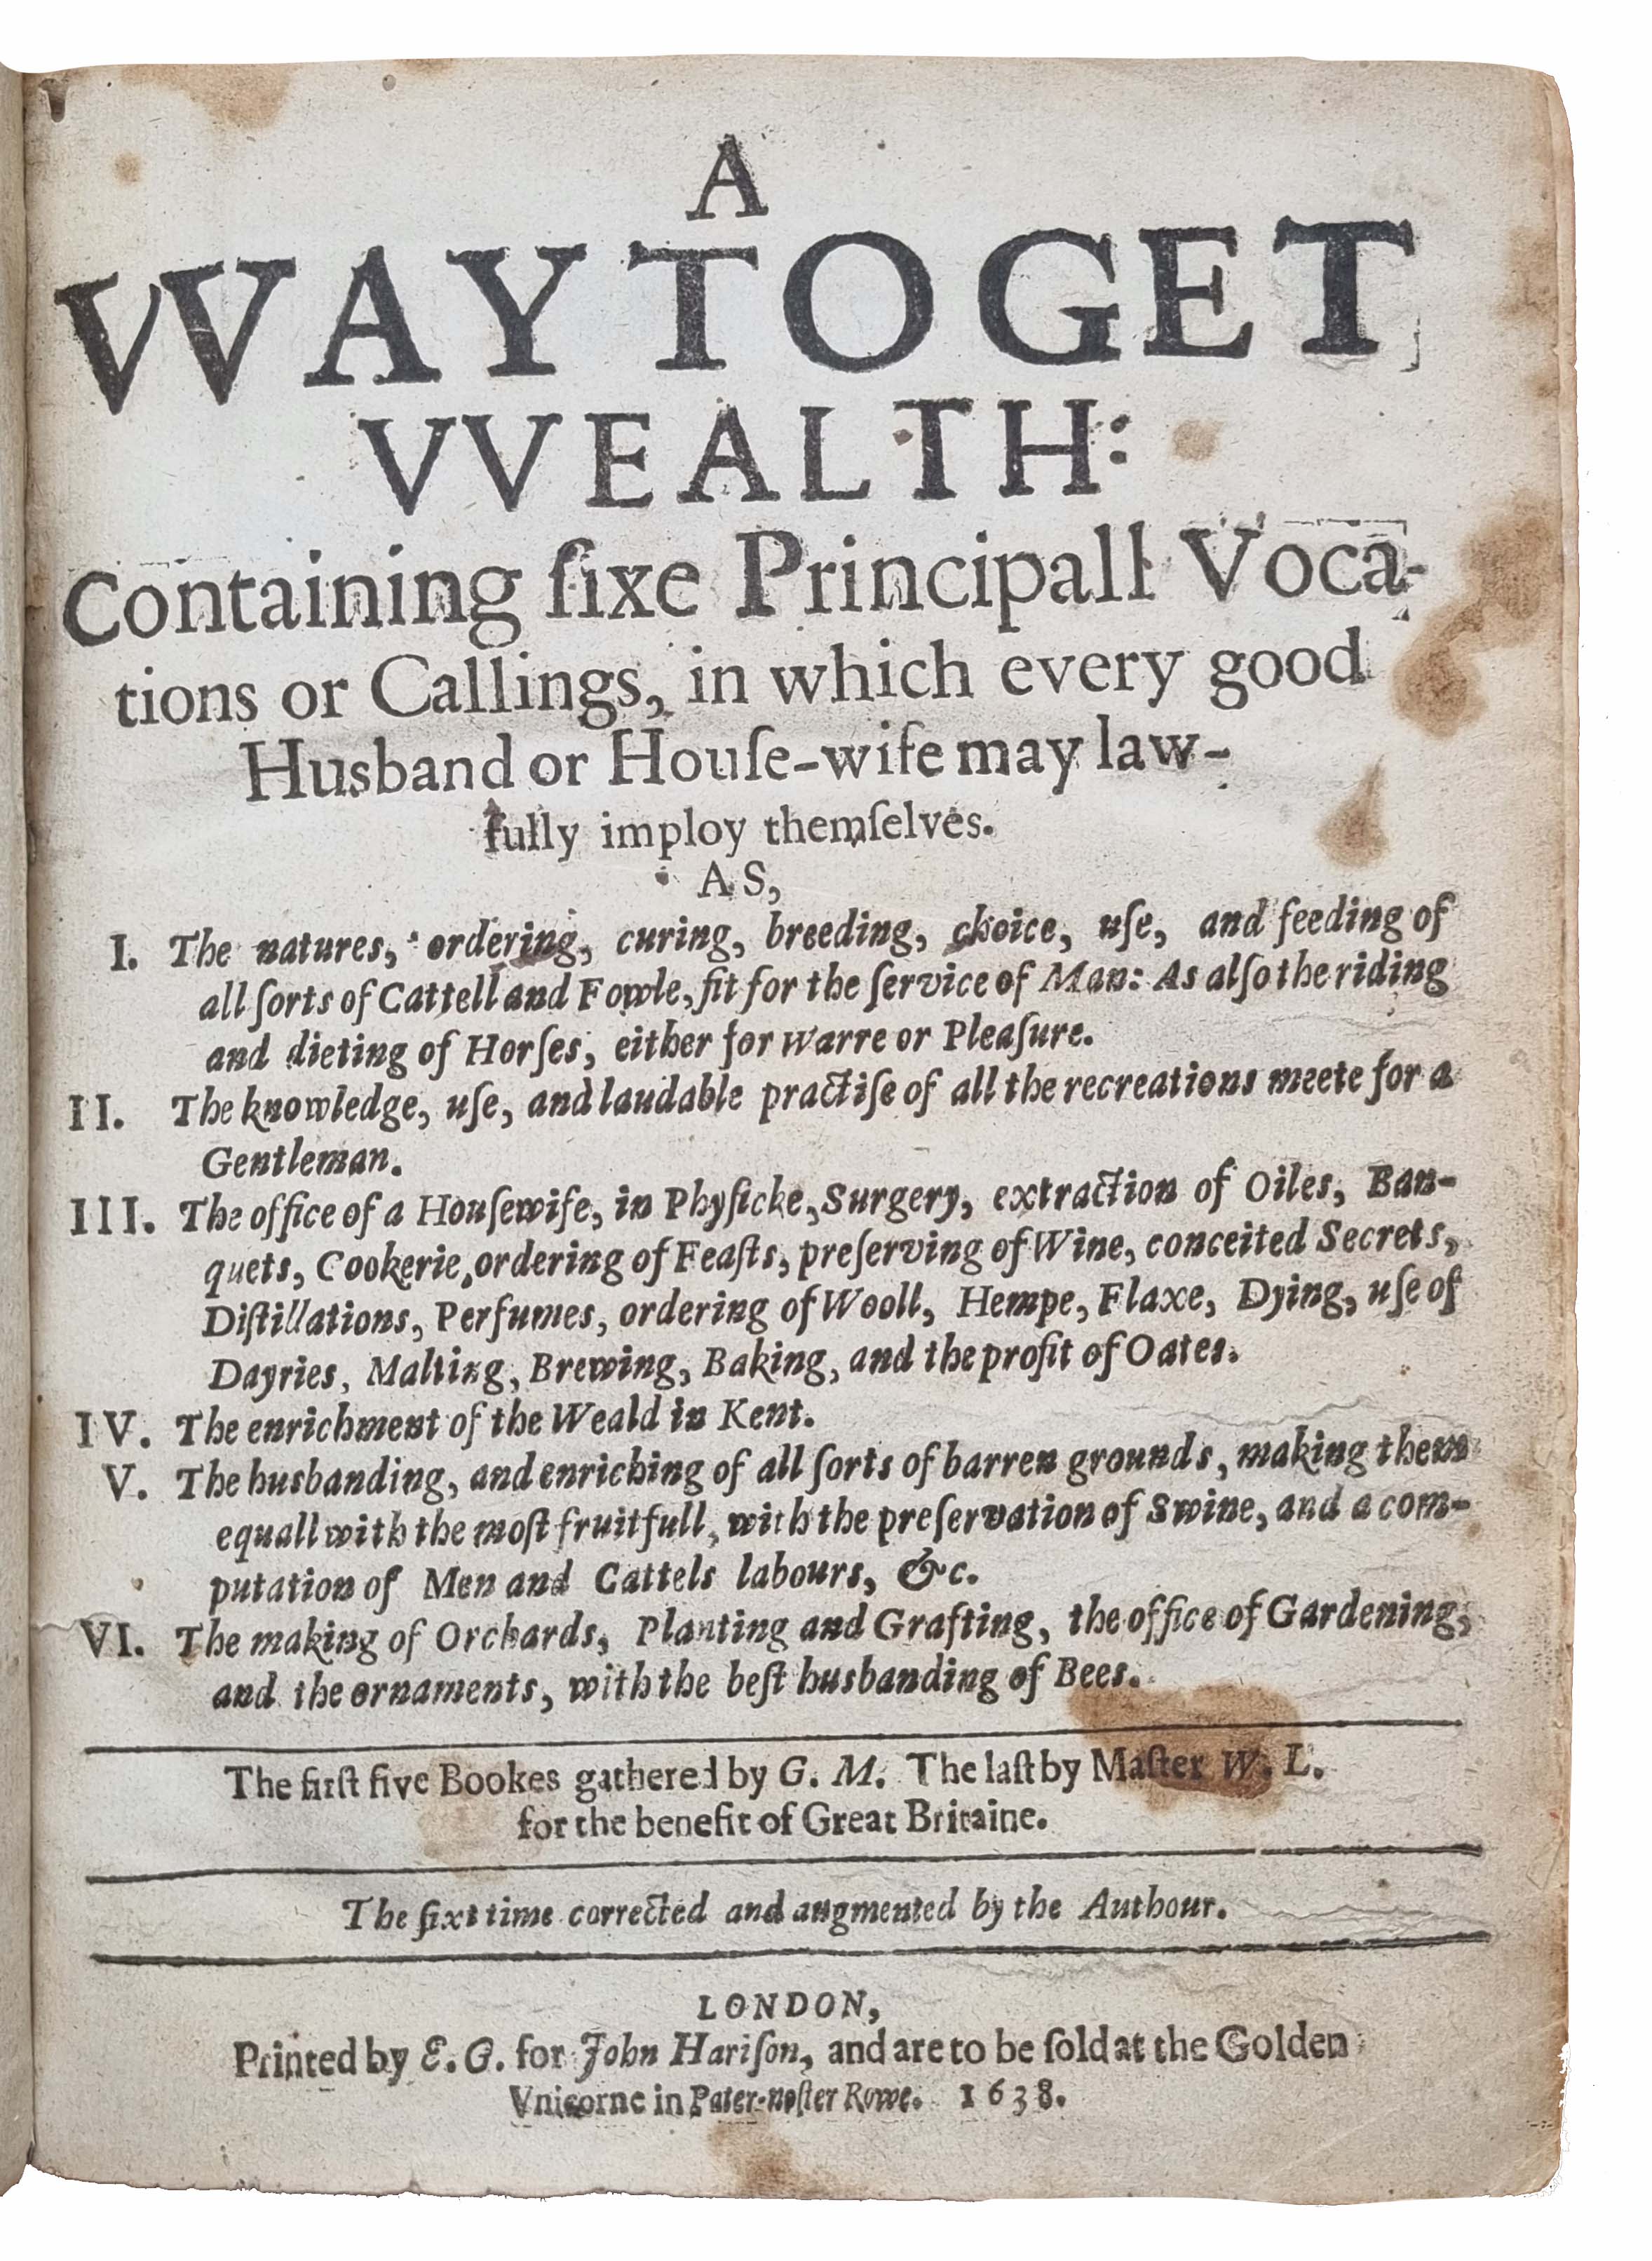 A
VVAY TO GET
VVEALTH:
Containing ſixe Principall Voca-
tions or Callings, in which every good
Husband or Houſe-wife may law-
fully imploy themſelves.
AS,
I. The natures, ordering, curing, breeding, choice, uſe, and feeding of
all ſorts of Cattell and Fowle, fit for the ſervice of Man: As alſo the riding
and dieting of Horſes, either for warre or Pleaſure.
II. The knowledge, uſe, and laudable practiſe of all the recreations meete for a
Gentleman.
III. The office of a Houſewife, in Phyſicke, Surgery, extraction of Oiles, Ban-
quets, Cookerie, ordering of Feaſts, preſerving of Wine, conceited Secrets,
Diſtillations, Perfumes, ordering of Wooll, Hempe, Flaxe, Dying, uſe of
Dayries, Malting, Brewing, Baking, and the profit of Oates.
IV. The enrichment of the Weald in Kent.
V. The husbanding, and enriching of all ſorts of barren grounds, making them
equall with the moſt fruitfull, with the preſervation of Swine, and a com-
putation of Men and Cattels labours, &c.
VI. The making of Orchards, Planting and Grafting, the office of Gardening,
and the ornaments, with the beſt husbanding of Bees.
The firſt five Bookes gathered by G. M. The laſt by Maſter W. L.
for the benefit of Great Britaine.
The ſixt time corrected and augmented by the Authour.
LONDON,
Printed by E. G. for John Hariſon, and are to be ſold at the Golden
Vnicorne in Pater-noſter Rowe. 1638.